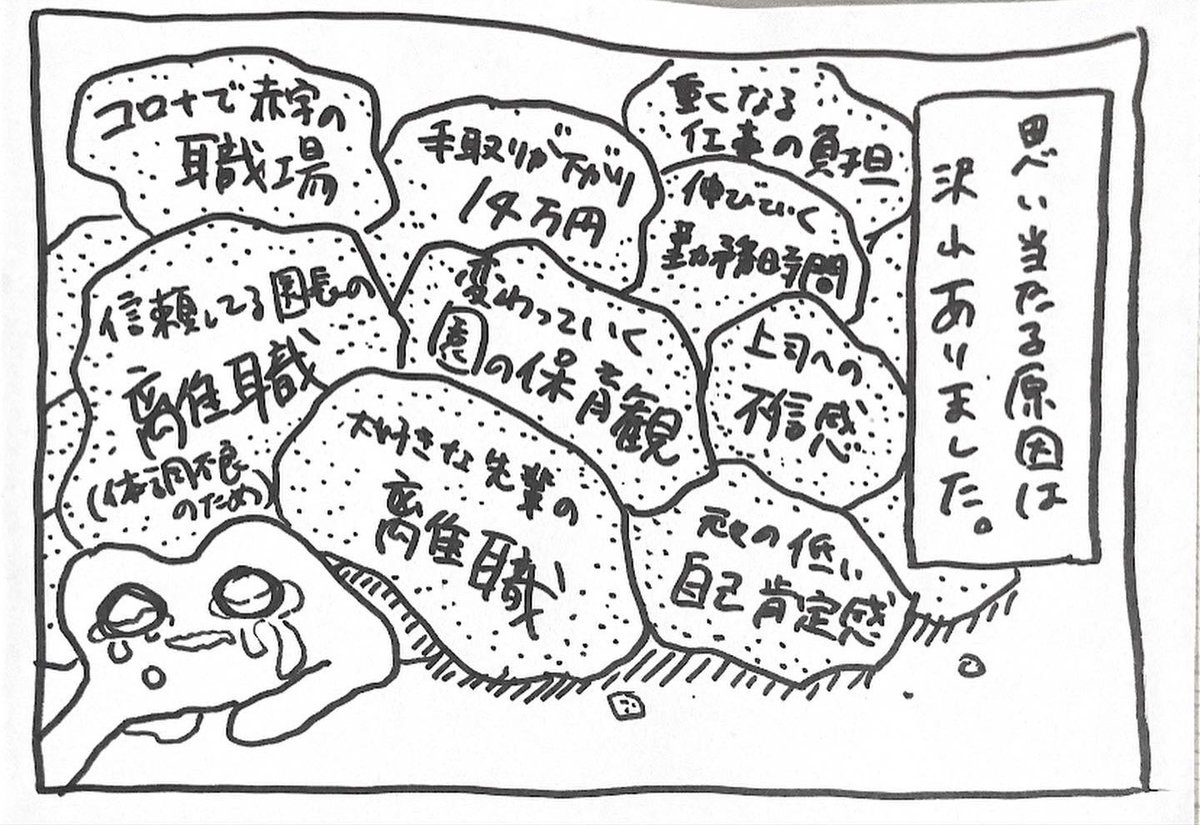 思い当たる原因は
沢山ありました。
重くなる
仕事の負担
伸びていく
勤務時間
手取りが下がり
14万円
コロナで赤字の
職場
上司への
不信感
変わっていく
園の保育観
信頼してる園長の
離職
(体調不良
のため)
元々の低い
自己肯定感
大好きな先輩の
離職